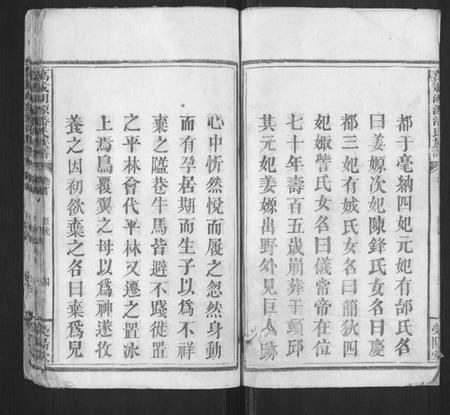 都于亳納四妃元妃有邰氏名
曰姜嫄次妃陳鋒氏女名曰慶
都三妃有娀氏女名曰簡狄四
妃娵訾氏女名曰儀常帝在位
七十年壽百五歲崩葬于頓邱
其元妃姜嫄出野外見巨人跡
心中忻然悅而履之忽然身動
而有孕居期而生子以為不祥
棄之隘巷牛馬皆避不踐徙置
之平林會代平林又遷之置冰
上焉鳥覆翼之母以為神遂收
養之因初欲棄之名曰棄為兒